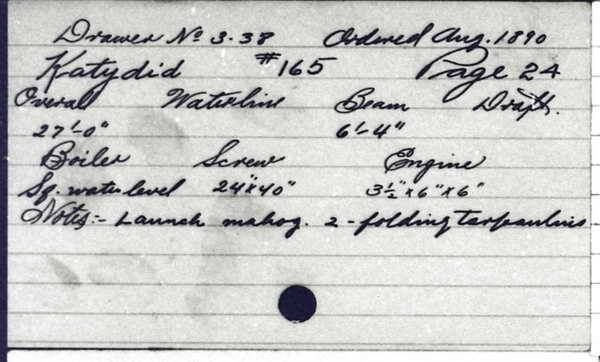 Drawer No 3.38 Ordered Aug. 1890
Katydid #165 Page 24
Overal Waterline Beam Draft.
27'-0" 6'-4"
Boiler Screw Engine
Sq. water level 24"x40" 3½"x6"x6"
Notes:- Launch mahog. 2-folding tarpaulins